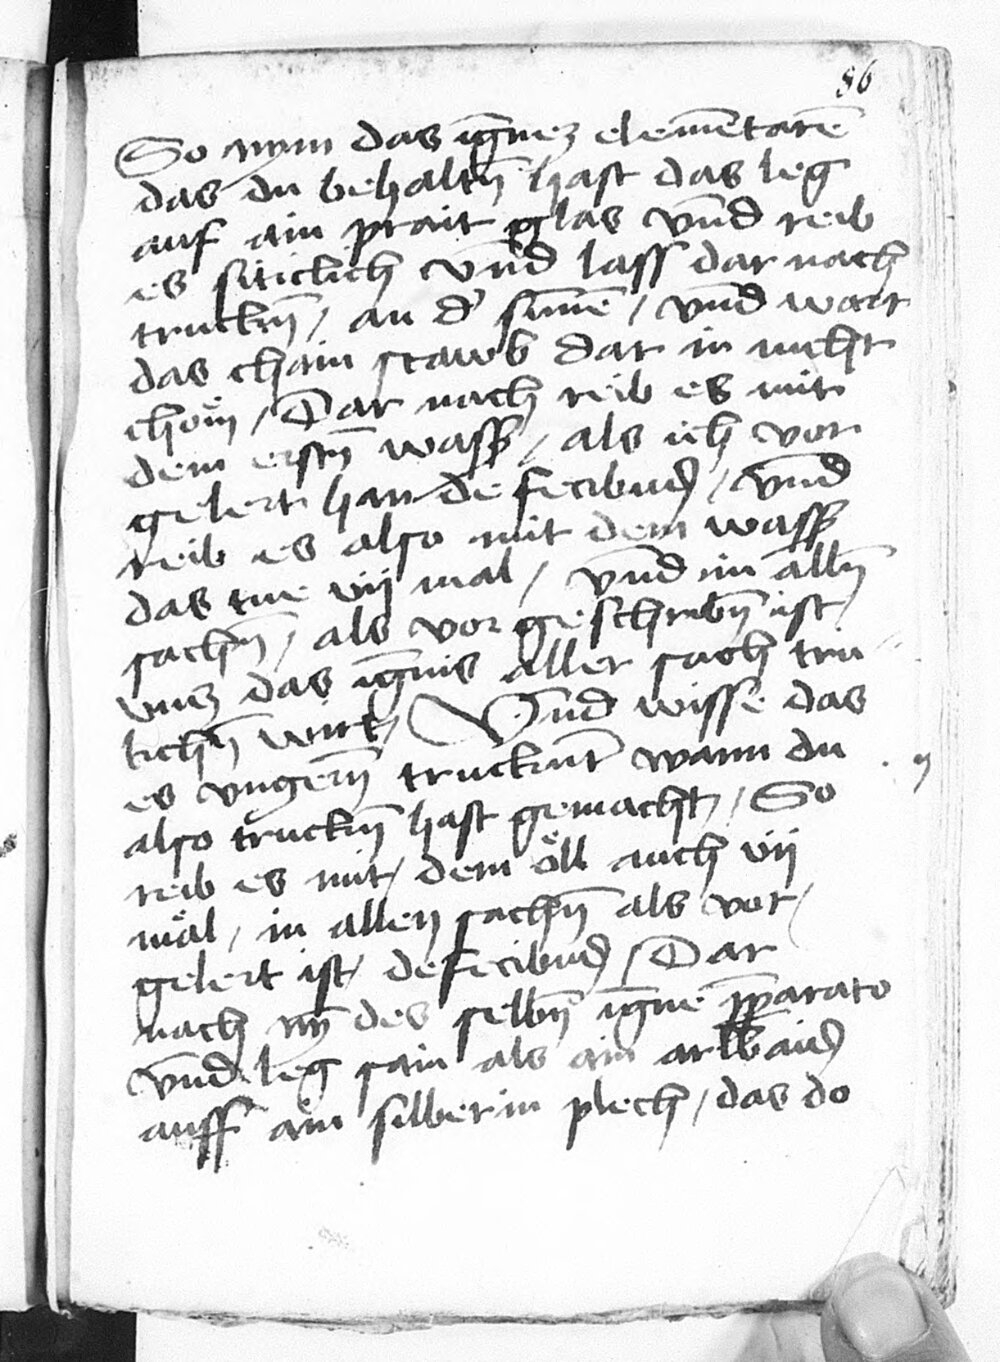 86
So nym das ignez elemētarē
das du behaltn̄ hast das leg
auf ain prait glas vnd reib
es siticlich vnd lass dar nach
truckn̄ / an d' sūne / vnd wart
das chain stawb dar in nicht
chöm / Dar nach reib es mit
dem erstn̄ wass / als ich vor
gelert han de fecibus / vnd
reib es also mit dem wass
das tue vij mal / vnd in alln̄
sachn̄ / als vor geschribn̄ ist /
vnz das ignis aller sach tru
lichn̄ wirt / Vnd wisse das
es vngern̄ trucknt wann du
also truckn̄ hast gemacht / So
reib es mit dem öll auch vij
mäl / in allen sachn̄ als vor
gelert ist / de fecibus / Dar
nach nȳ des selbn̄ igne pparato
vnd leg sain als ain arbais
auff ain silberin plech / das do